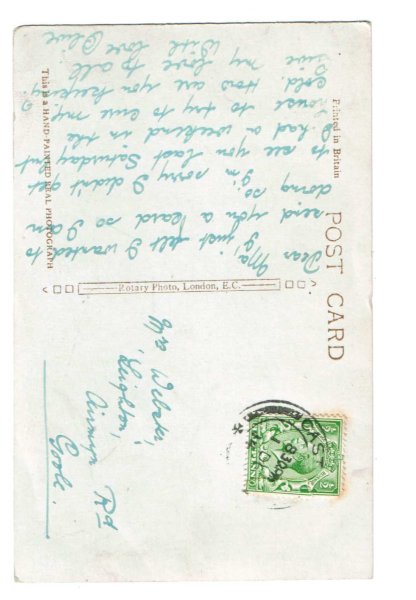 POST CARD
Printed in Britain
This is a HAND-PAINTED REAL PHOTOGRAPH
Rotary Photo, London, E.C.
Dear Ma,
I just felt I wanted to
send you a card so I am
doing so. I'm sorry I didn't get
to see you last Saturday but
I had a weekend in the
house to try to cure my
cold. How are you keeping?
Give my love to all
With love Olive
Mrs
"Leighton",
Airmyn Rd
Goole.
CAST
830PM